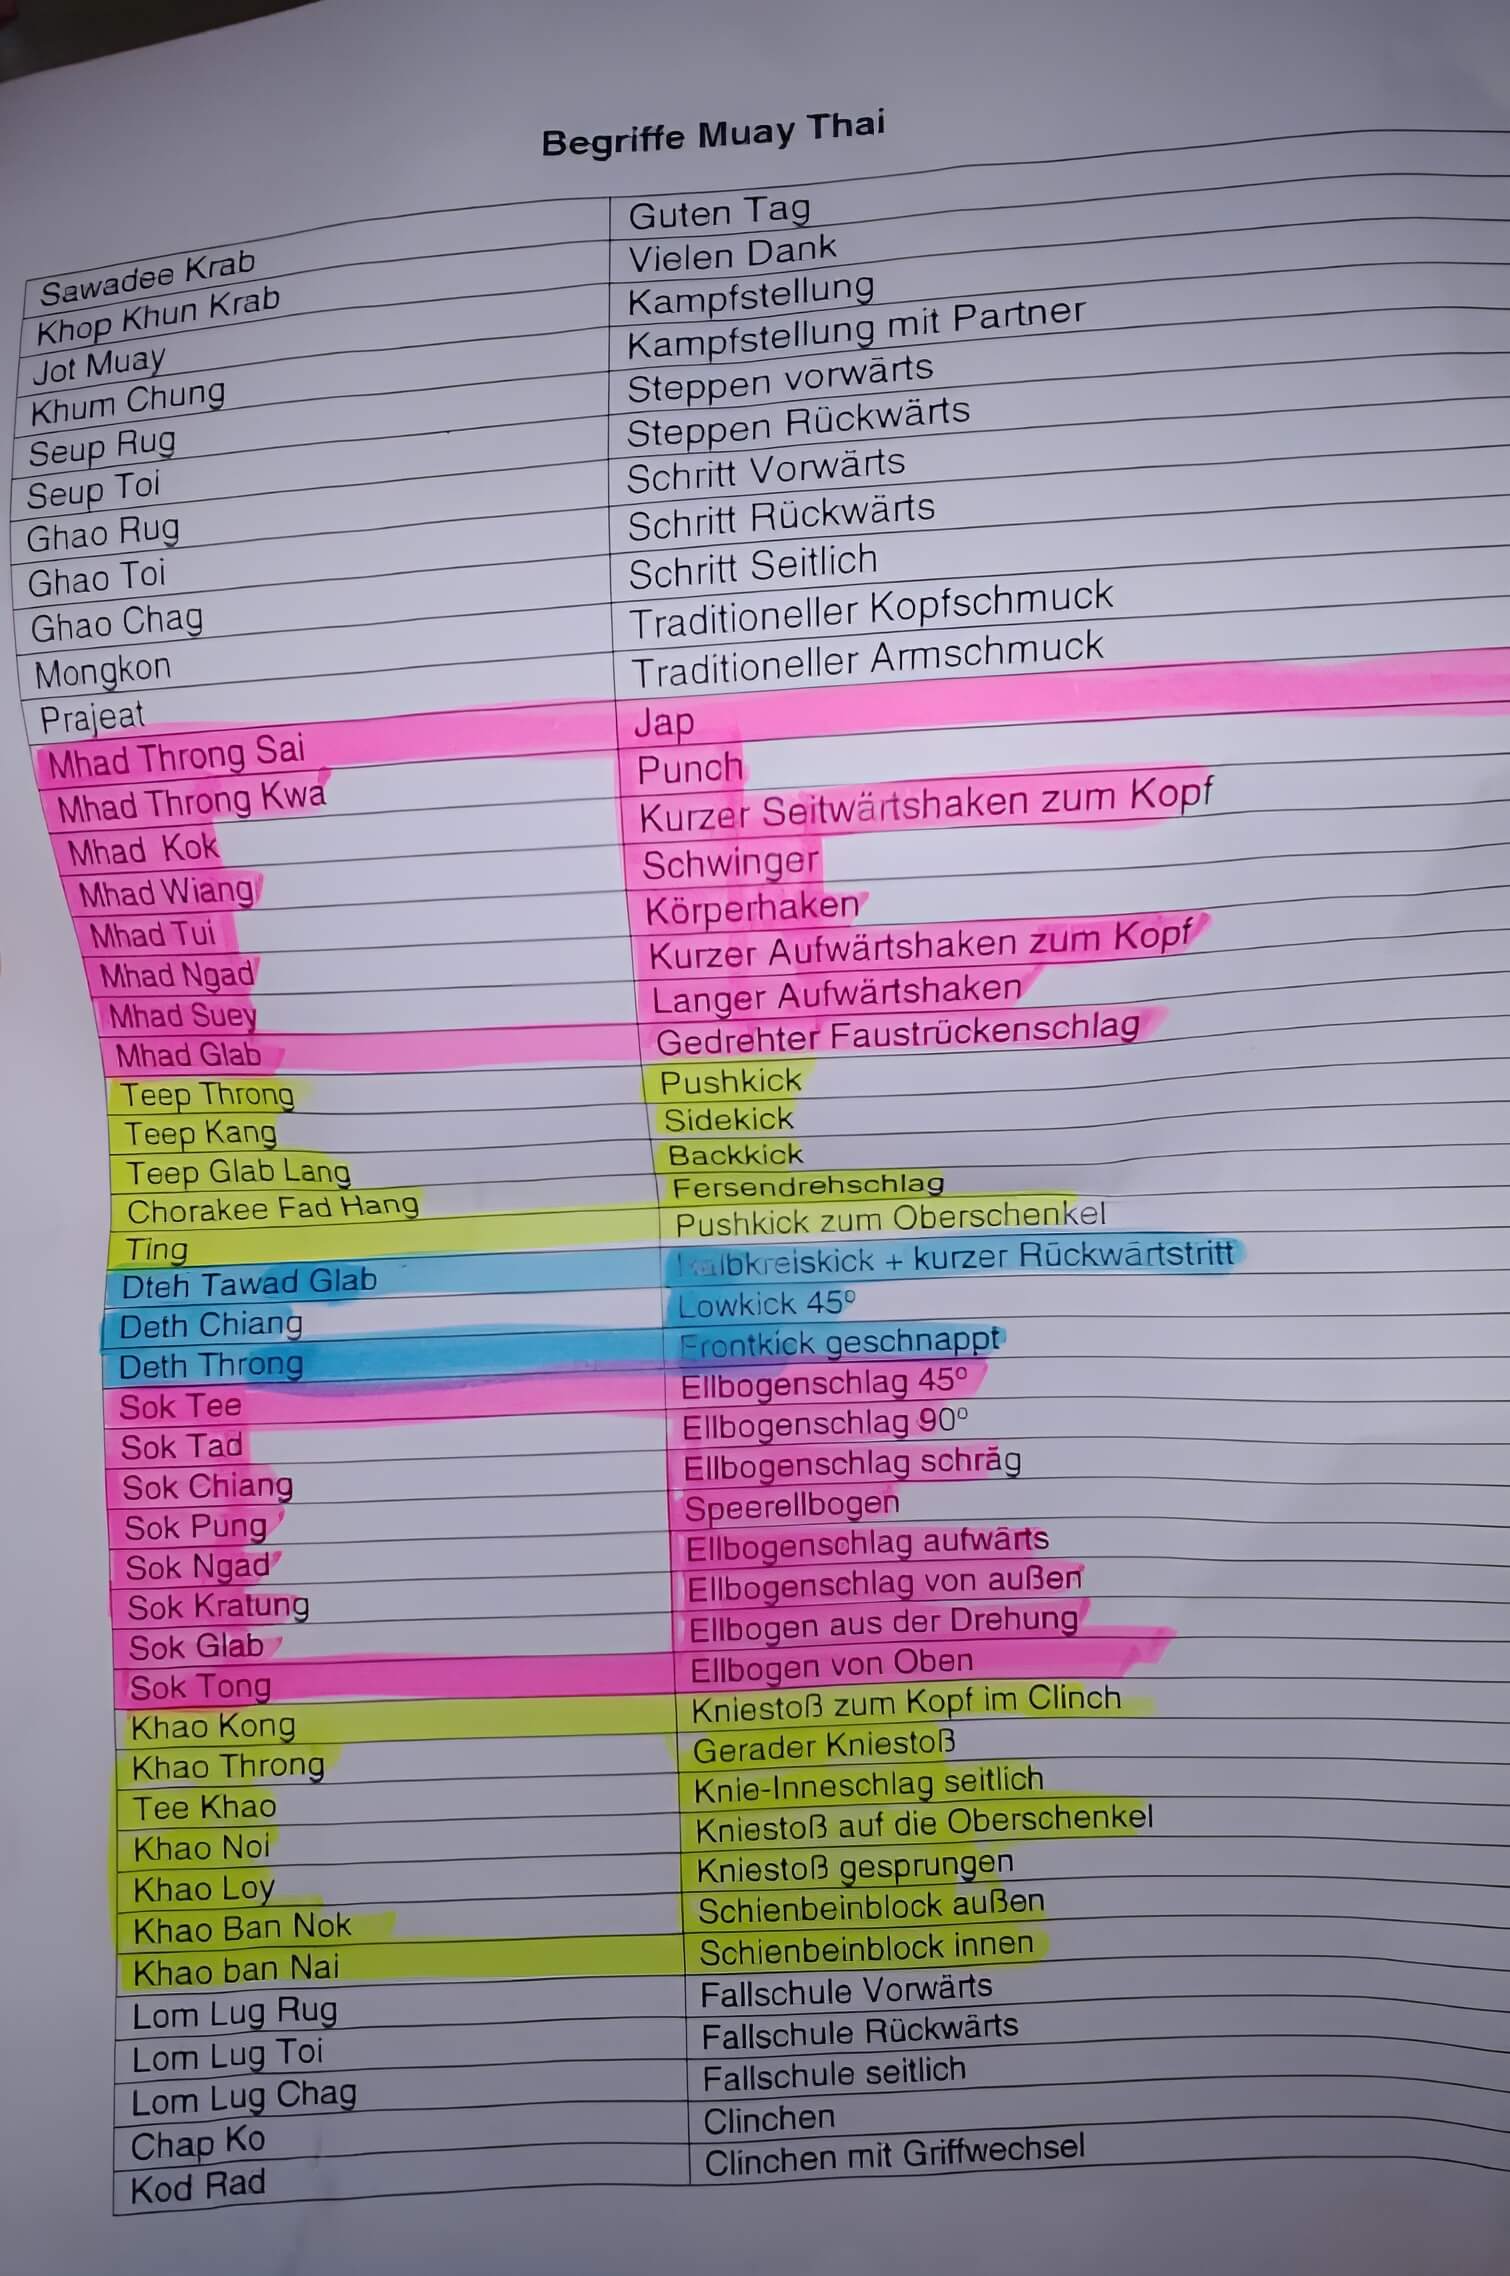 Begriffe Muay Thai
Sawadee Krab Guten Tag
Khop Khun Krab Vielen Dank
Jot Muay Kampfstellung
Khum Chung Kampfstellung mit Partner
Seup Rug Steppen vorwärts
Seup Toi Steppen Rückwärts
Ghao Rug Schritt Vorwärts
Ghao Toi Schritt Rückwärts
Ghao Chag Schritt Seitlich
Mongkon Traditioneller Kopfschmuck
Prajeat Traditioneller Armschmuck
Mhad Throng Sai Jap
Mhad Throng Kwa Punch
Mhad Kok Kurzer Seitwärtshaken zum Kopf
Mhad Wiang Schwinger
Mhad Tui Körperhaken
Mhad Ngad Kurzer Aufwärtshaken zum Kopf
Mhad Suey Langer Aufwärtshaken
Mhad Glab Gedrehter Faustrückenschlag
Teep Throng Pushkick
Teep Kang Sidekick
Teep Glab Lang Backkick
Chorakee Fad Hang Fersendrehschlag
Ting Pushkick zum Oberschenkel
Dteh Tawad Glab Halbkreiskick + kurzer Rückwärtstritt
Deth Chiang Lowkick 45º
Deth Throng Frontkick geschnappt
Sok Tee Ellbogenschlag 45º
Sok Tad Ellbogenschlag 90º
Sok Chiang Ellbogenschlag schräg
Sok Pung Speerellbogen
Sok Ngad Ellbogenschlag aufwärts
Sok Kratung Ellbogenschlag von außen
Sok Glab Ellbogen aus der Drehung
Sok Tong Ellbogen von Oben
Khao Kong Kniestoß zum Kopf im Clinch
Khao Throng Gerader Kniestoß
Tee Khao Knie-Inneschlag seitlich
Khao Noi Kniestoß auf die Oberschenkel
Khao Loy Kniestoß gesprungen
Khao Ban Nok Schienbeinblock außen
Khao ban Nai Schienbeinblock innen
Lom Lug Rug Fallschule Vorwärts
Lom Lug Toi Fallschule Rückwärts
Lom Lug Chag Fallschule seitlich
Chap Ko Clinchen
Kod Rad Clinchen mit Griffwechsel